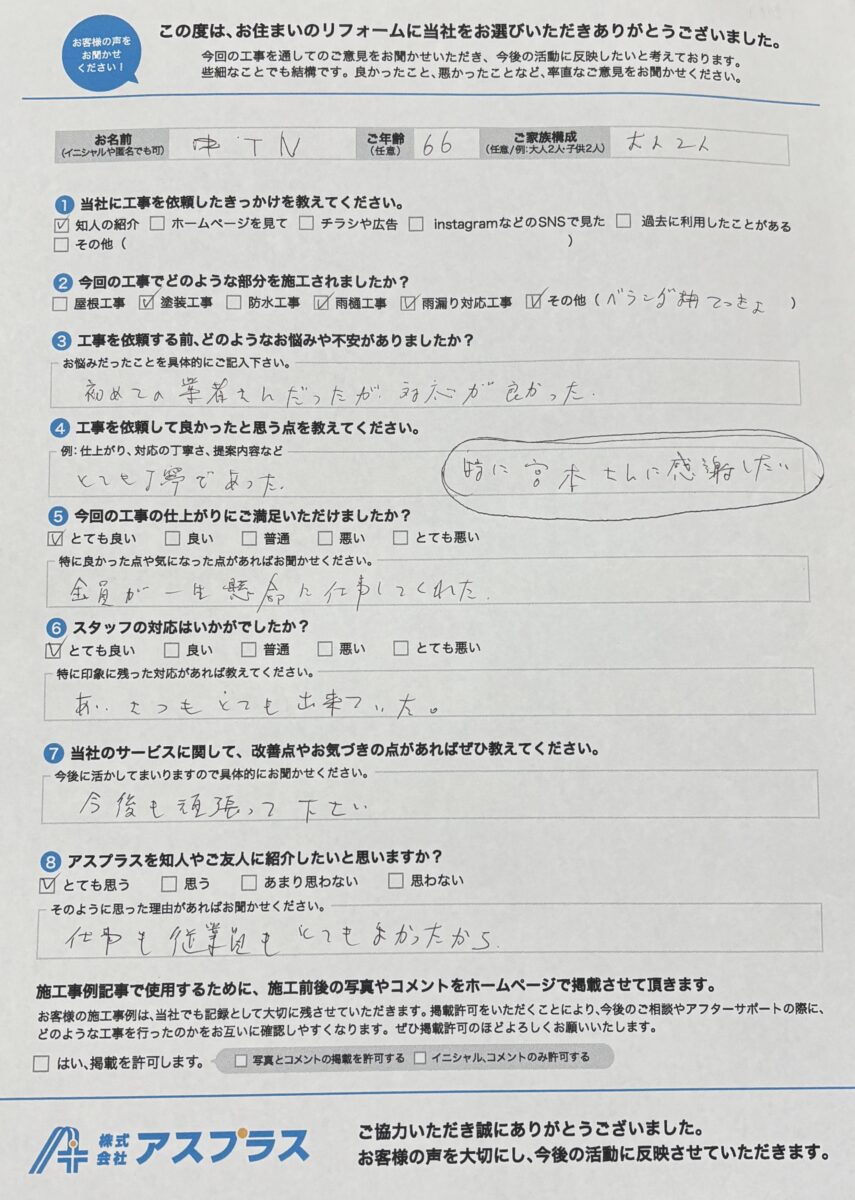 お客様の声を
お聞かせ
ください！
この度は、お住まいのリフォームに当社をお選びいただきありがとうございました。
今回の工事を通してのご意見をお聞かせいただき、今後の活動に反映したいと考えております。
些細なことでも結構です。良かったこと、悪かったことなど、率直なご意見をお聞かせください。
お名前 (イニシャルや匿名でも可) TN ご年齢 (任意) 66 ご家族構成 (任意/例:大人2人・子供2人) 大人2人
1 当社に工事を依頼したきっかけを教えてください。
☑ 知人の紹介 □ ホームページを見て □ チラシや広告 □ instagramなどのSNSで見た □ 過去に利用したことがある
□ その他（ ）
2 今回の工事でどのような部分を施工されましたか？
□ 屋根工事 ☑ 塗装工事 □ 防水工事 ☑ 雨樋工事 ☑ 雨漏り対応工事 ☑ その他（ベランダ てっきょ ）
3 工事を依頼する前、どのようなお悩みや不安がありましたか？
お悩みだったことを具体的にご記入下さい。
初めての業者さんだったが、対応が良かった.
4 工事を依頼して良かったと思う点を教えてください。
例:仕上がり、対応の丁寧さ、提案内容など
とても丁寧であった. 特に宮本さんに感謝したい
5 今回の工事の仕上がりにご満足いただけましたか？
☑ とても良い □ 良い □ 普通 □ 悪い □ とても悪い
特に良かった点や気になった点があればお聞かせください。
全員が一生懸命に仕事してくれた.
6 スタッフの対応はいかがでしたか？
☑ とても良い □ 良い □ 普通 □ 悪い □ とても悪い
特に印象に残った対応があれば教えてください。
あいさつもとても出来ていた。
7 当社のサービスに関して、改善点やお気づきの点があればぜひ教えてください。
今後に活かしてまいりますので具体的にお聞かせください。
今後も頑張って下さい
8 アスプラスを知人やご友人に紹介したいと思いますか？
☑ とても思う □ 思う □ あまり思わない □ 思わない
そのように思った理由があればお聞かせください。
仕事も従業員もとてもよかったから.
施工事例記事で使用するために、施工前後の写真やコメントをホームページで掲載させて頂きます。
お客様の施工事例は、当社でも記録として大切に残させていただきます。掲載許可をいただくことにより、今後のご相談やアフターサポートの際に、
どのような工事を行ったのかをお互いに確認しやすくなります。ぜひ掲載許可のほどよろしくお願いいたします。
□ はい、掲載を許可します。 □ 写真とコメントの掲載を許可する □ イニシャル、コメントのみ許可する
株式会社 アスプラス
ご協力いただき誠にありがとうございました。
お客様の声を大切にし、今後の活動に反映させていただきます。